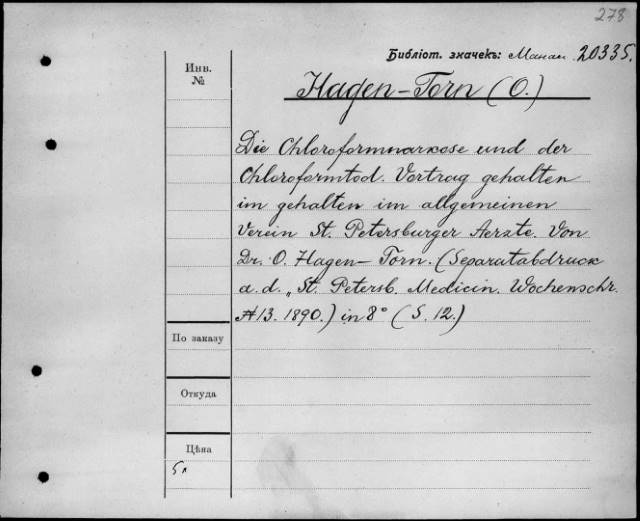 278
Библіот. значекъ: Манас. 20335.
Инв.
№
Hagen-Torn (O.)
Die Chloroformnarkose und der
Chloroformtod. Vortrag gehalten
im gehalten im allgemeinen
Verein St. Petersburger Aerzte. Von
Dr. O. Hagen-Torn. (Separatabdruck
a.d. „St. Petersb. Medicin. Wochenschr.
№13. 1890.) in 8° (S. 12.)
По заказу
Откуда
Цѣна